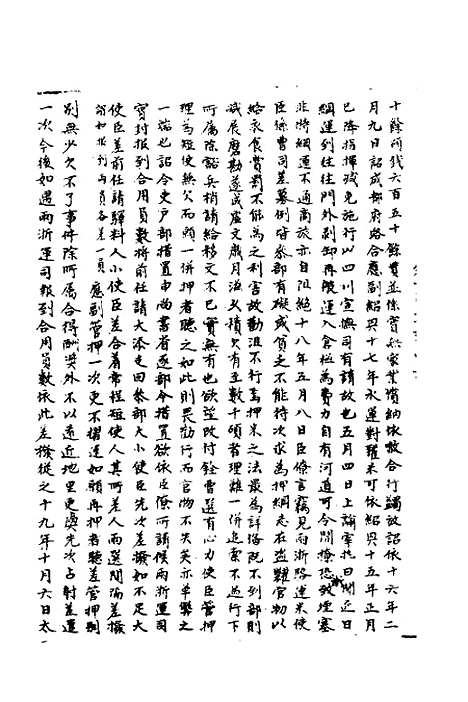 十餘所錢六百五十餘貫並係實無家業填納依赦合行蠲放詔依十六年二
月九日詔成都府路合應副紹興十七年水運對糴米可依紹興十五年正月
已降指揮減免施行以四川宣撫司有請故也五月四日上諭宰執曰聞近日
綱運到往往門外剝卸再陸運入倉極為費力自有河道可令開撩恐致堙塞
非將綱運不通商旅亦自阻絕十八年五月八日臣僚言竊見兩浙路運米使
臣係曹司差募例皆參部有礙或貧乏不能待次求為押綱志在盜糶官物以
給衣食賞罰不能為之利害故勸沮不行焉押米之法最為詳備既不到部則
減展磨勘遂成虛文歲月滋久積欠有至數千碩者理難一併追索不過行下
所屬除豁兵梢請給移文不已實無有也欲望改付銓曹選有心力使臣管押
理為短使無欠而願一併押者聽之如此則畏勸行而官物不失矣亦革弊之
一端也詔令吏戶部措置申尚書省逐部今措置欲依臣僚所請候兩浙運司
實封報到合用員數將前任請大添支回參部大小使臣先次差撥如不足大
使臣差前任請驛料人小使臣差合著常程短使人其所差人兩選開滿差撥
謂如報到两員各差一員應副管押一次更不擢運如願再押者聽差管押到
別無少欠不了事件除所屬合得酬獎外不以遠近地里更與先次占射差遣
一次今後如遇兩浙運司報到合用員數依此差撥從之十九年十月六日太